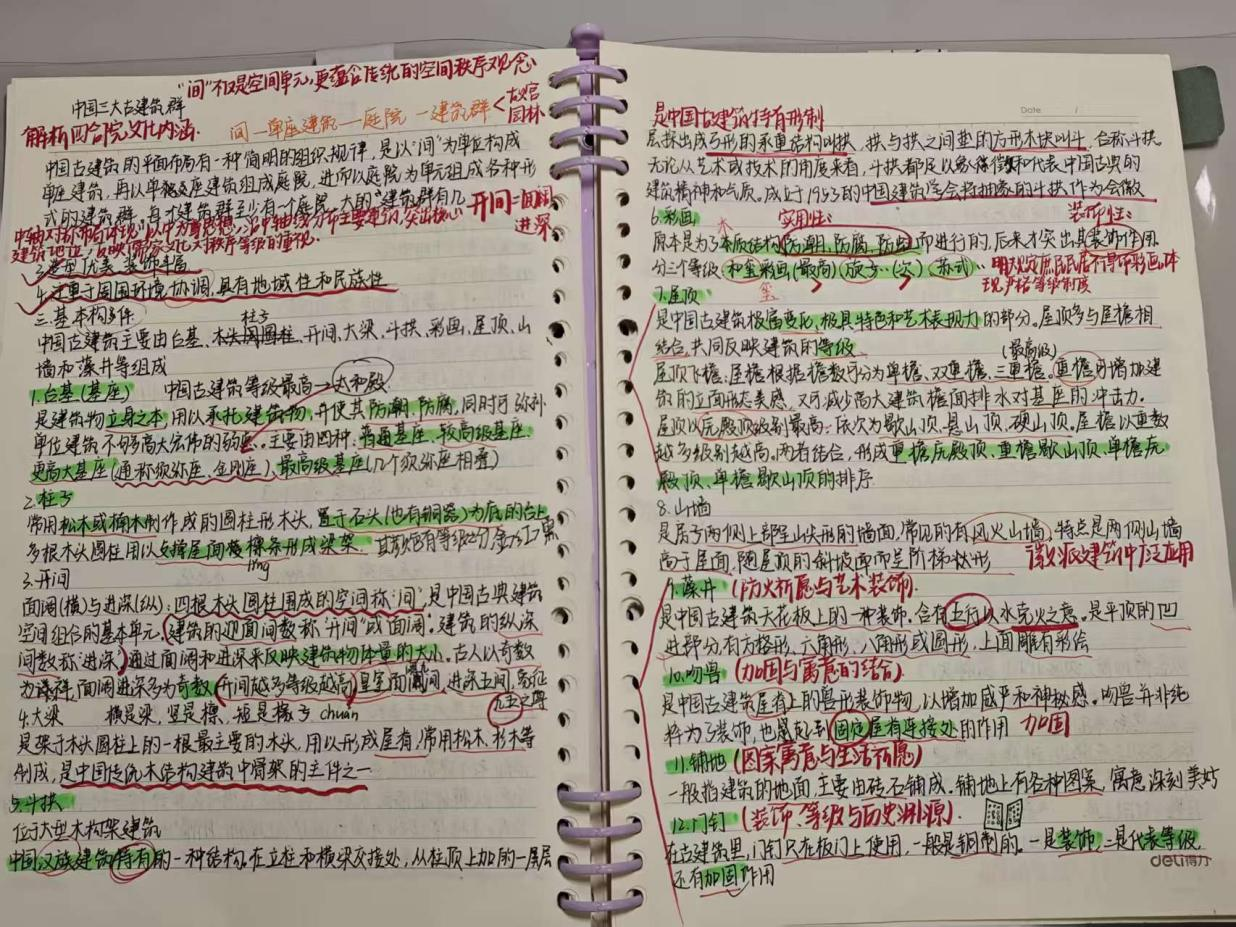 "间"不仅是空间单元,更蕴含传统的空间秩序观念
中国三大古建筑群
解析四合院文化内涵.
间—单座建筑—庭院—建筑群<故宫
园林
中国古建筑的平面布局有一种简明的组织规律,是以"间"为单位构成
单座建筑,再以单座建筑组成庭院,进而以庭院为单元组成各种形
式的建筑群.每个建筑群至少有一个庭院,大的建筑群有几
开间=面阔
进深
中轴对称布局体现"以中为尊"思想,沿中轴线分布主要建筑,突出核心
建筑地位,反映儒家文化对秩序等级的重视.
3.造型优美,装饰丰富
4.注重于周围环境协调,具有地域性和民族性
三.基本构件
柱子
中国古建筑主要由台基、木头圆柱、开间、大梁、斗拱、彩画、屋顶、山
墙和藻井等组成
1.台基(基座) 中国古建筑等级最高—太和殿
是建筑物立身之本,用以承托建筑物,并使其防潮、防腐,同时可弥补
单位建筑不够高大宏伟的弱点.主要由四种:普通基座、较高级基座.
更高大基座(通称须弥座、金刚座)、最高级基座(几个须弥座相叠)
2.柱子
常用松木或楠木制作成的圆柱形木头,置于石头(也有铜器)为底的台上
多根木头圆柱用以支撑屋面檩条形成梁架.
lǐng
3.开间
面阔(横)与进深(纵):四根木头圆柱围成的空间称"间",是中国古典建筑
空间组合的基本单元,(建筑的迎面间数称"开间"或"面阔".建筑的纵深
间数称"进深")通过面阔和进深来反映建筑物体量的大小.古人以奇数
为吉祥,面阔进深多为奇数(开间越多等级越高)皇室面阔九间,进深五间,象征
九五之尊
4.大梁 横是梁,竖是檩,短是椽子chuán
是架于木头圆柱上的一根最主要的木头,用以形成屋脊,常用松木、杉木等
制成,是中国传统木结构建筑中骨架的主件之一
5.斗拱
位于大型木构架建筑
中国汉族建筑特有的一种结构.在立柱和横梁交接处,从柱顶上加的一层层
是中国古建筑特有形制
Date /
层探出成弓形的承重结构叫拱,拱与拱之间垫的方形木块叫斗,合称斗拱
无论从艺术或技术的角度来看,斗拱都足以象征和代表中国古典的
建筑精神和气质.成立于1953的中国建筑学会将抽象的斗拱作为会徽
6.彩画 实用性: 装饰性:
木
原本是为了木质结构防潮、防腐、防蛀而进行的,后来才突出其装饰作用.
分三个等级(和玺彩画(最高)(旋子·(次)(苏式· 明规定庶民民居不得饰彩画,体
玺 现严格等级制度
7.屋顶
是中国古建筑极富变化,极具特色和艺术表现力的部分.屋顶多与屋檐相
结合,共同反映建筑的等级
(最高级)
屋顶飞檐:屋檐根据檐数可分为单檐、双重檐、三重檐.重檐可增加建
筑的立面形态美感,又可减少高大建筑檐面排水对基座的冲击力.
屋顶以庑殿顶级别最高.依次为歇山顶、悬山顶、硬山顶.屋檐以重数
越多级别越高,两者结合,形成重檐庑殿顶、重檐歇山顶、单檐庑
殿顶、单檐歇山顶的排序.
8.山墙
是房子两侧上部呈山尖形的墙面,常见的有风火山墙,特点是两侧山墙
高于屋面,随屋顶的斜坡面而呈阶梯状形 徽派建筑中广泛应用
9.藻井(防火祈愿与艺术装饰)
是中国古建筑天花板上的一种装饰.含有五行以水克火之意.是平顶的凹
进部分,有方格形、六角形、八角形或圆形,上面雕有彩绘
10.吻兽(加固与寓意的结合)
是中国古建筑屋脊上的兽形装饰物,以增加威严和神秘感.吻兽并非纯
粹为了装饰,也是起到固定屋脊连接处的作用 加固
11.铺地(图案寓意与生活祈愿)
一般指建筑的地面,主要由砖石铺成.铺地上有各种图案,寓意深刻美好
12.门钉(装饰、等级与历史渊源)
在古建筑里,门钉只在板门上使用,一般是铜制的.一是装饰,二是代表等级,
还有加固作用
deli得力